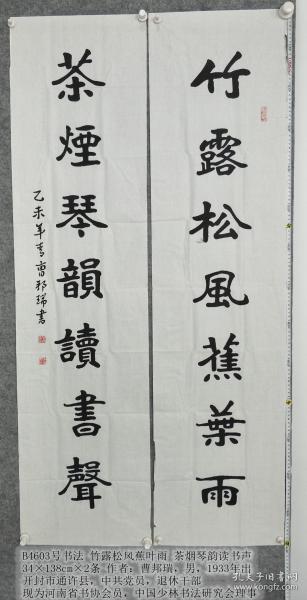 竹露松風蕉葉雨
茶煙琴韻讀書聲
乙未年春曹邦瑞書
B4603号书法 竹露松风蕉叶雨 茶烟琴韵读书声
34×138cm×2条 作者：曹邦瑞，男，1933年出
开封市通许县，中共党员，退休干部
现为河南省书协会员，中国少林书法研究会理事